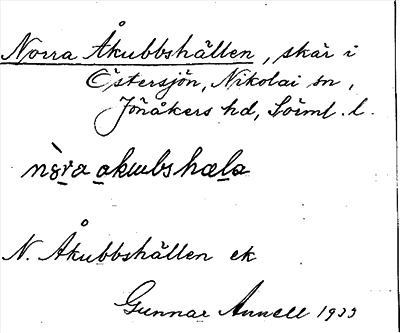 Norra Åkubbshällen, skär i
Östersjön, Nikolai sn,
Jönåkers hd, Söiml. l.
nò̤ra a̱kubshæla
N. Åkubbshällen ek
Gunnar Annell 1933